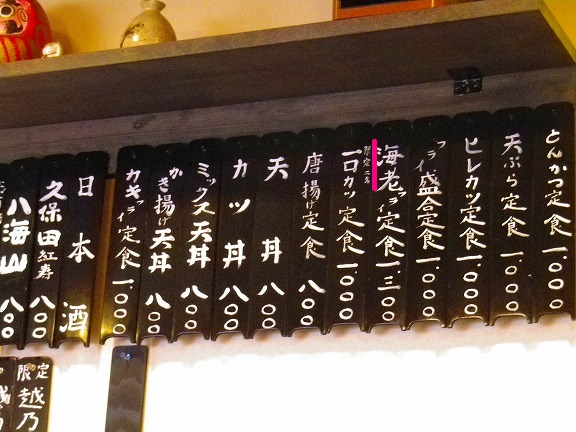 とんかつ定食 一、〇〇〇
天ぷら定食 一、〇〇〇
ヒレカツ定食 一、〇〇〇
フライ盛合定食 一、〇〇〇
海老フライ定食 一、三〇〇
一口カツ定食 一、〇〇〇
唐揚げ定食 八〇〇
天丼 八〇〇
カツ丼 八〇〇
ミックス天丼 八〇〇
かき揚げ天丼 八〇〇
カキフライ定食 一、〇〇〇
日本酒
久保田 紅寿 八〇〇
八海山 八〇〇
限定
越乃